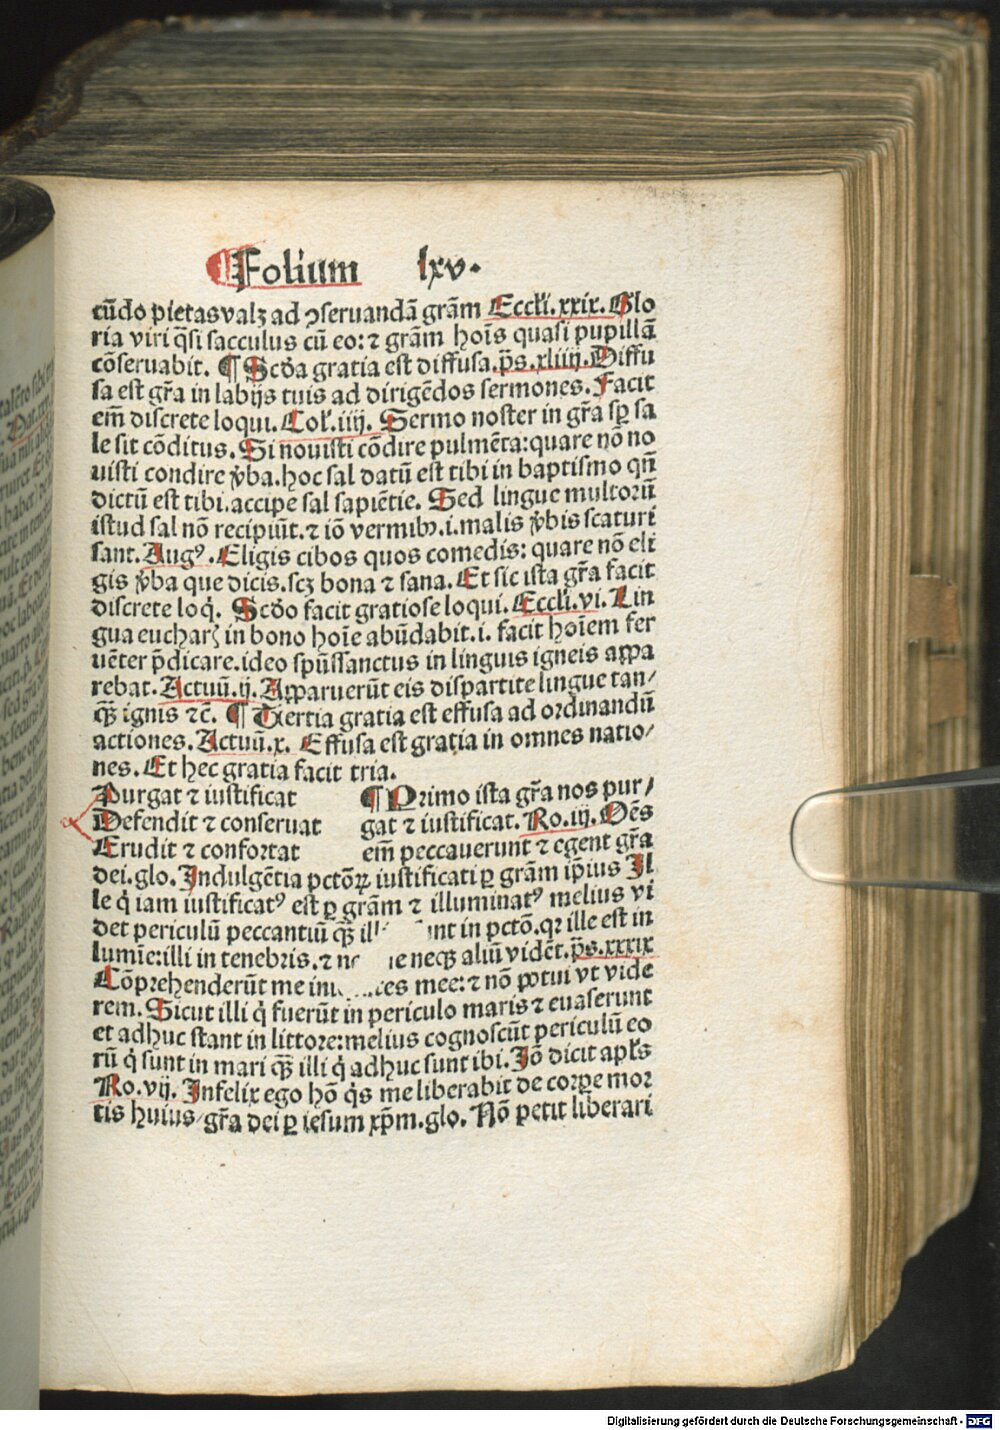 Folium lxv.
cūdo pietas valꝫ ad ↄseruandā grām Eccl'i.xxix. Glo
ria viri q̄si sacculus cū eo: ⁊ grām hoīs quasi pupillā
cōseruabit. ¶ Scd̄a gratia est diffusa.p̄s.xliiij.Diffu
sa est gr̄a in labijs tuis ad dirigēdos sermones. Facit
em̄ discrete loqui. Col'.iiij. Sermo noster in gr̄a sp̄ sa
le sit cōditus. Si nouisti cōdire pulmēta: quare nō no
uisti condire v̄ba. hoc sal datū est tibi in baptismo qn̄
dictū est tibi. accipe sal sapiētie. Sed lingue multorū
istud sal nō recipiūt. ⁊ iō vermibꝰ.i.malis v̄bis scaturi
sant. Augꝰ. Eligis cibos quos comedis: quare nō eli
gis v̄ba que dicis.scꝫ bona ⁊ sana. Et sic ista gr̄a facit
discrete loq̇. Scd̄o facit gratiose loqui. Eccl'i.vi. Lin
gua eucharꝭ in bono hoīe abūdabit.i. facit hoīem fer
uēter p̄dicare. ideo spūssanctus in linguis igneis appa
rebat. Actuū.ij. Apparuerūt eis dispartite lingue tan⸗
ꝙ̄ ignis ⁊c̄. ¶ Tertia gratia est effusa ad ordinandū
actiones. Actuū.x. Effusa est gratia in omnes natio/
nes. Et hec gratia facit tria.
Purgat ⁊ iustificat
Defendit ⁊ conseruat
Erudit ⁊ confortat
¶ Primo ista gr̄a nos pur/
gat ⁊ iustificat. Ro.iij. Oēs
em̄ peccauerunt ⁊ egent gr̄a
dei.glo. Indulgētia pctōꝝ iustificati ꝑ grām ip̄ius Il
le q̇ iam iustificatꝰ est ꝑ grām ⁊ illuminatꝰ melius vi
det periculū peccantiū ꝙ̄ in pctō.qꝛ ille est in
lumīe: illi in tenebris. ⁊ neqꝫ aliū vidēt. p̄s.xxxix
Cōprehenderūt me mee: ⁊ nō potui vt vide
rem. Sicut illi q̇ fuerūt in periculo maris ⁊ euaserunt
et adhuc stant in littore: melius cognoscūt periculū eo
rū q̇ sunt in mari ꝙ̄ illi q̇ adhuc sunt ibi. Iō dicit apl's
Ro.vij. Infelix ego hō q̇s me liberabit de corpe mor
tis huius/gr̄a dei ꝑ iesum xp̄m.glo. Nō petit liberari
Digitalisierung gefördert durch die Deutsche Forschungsgemeinschaft - DFG